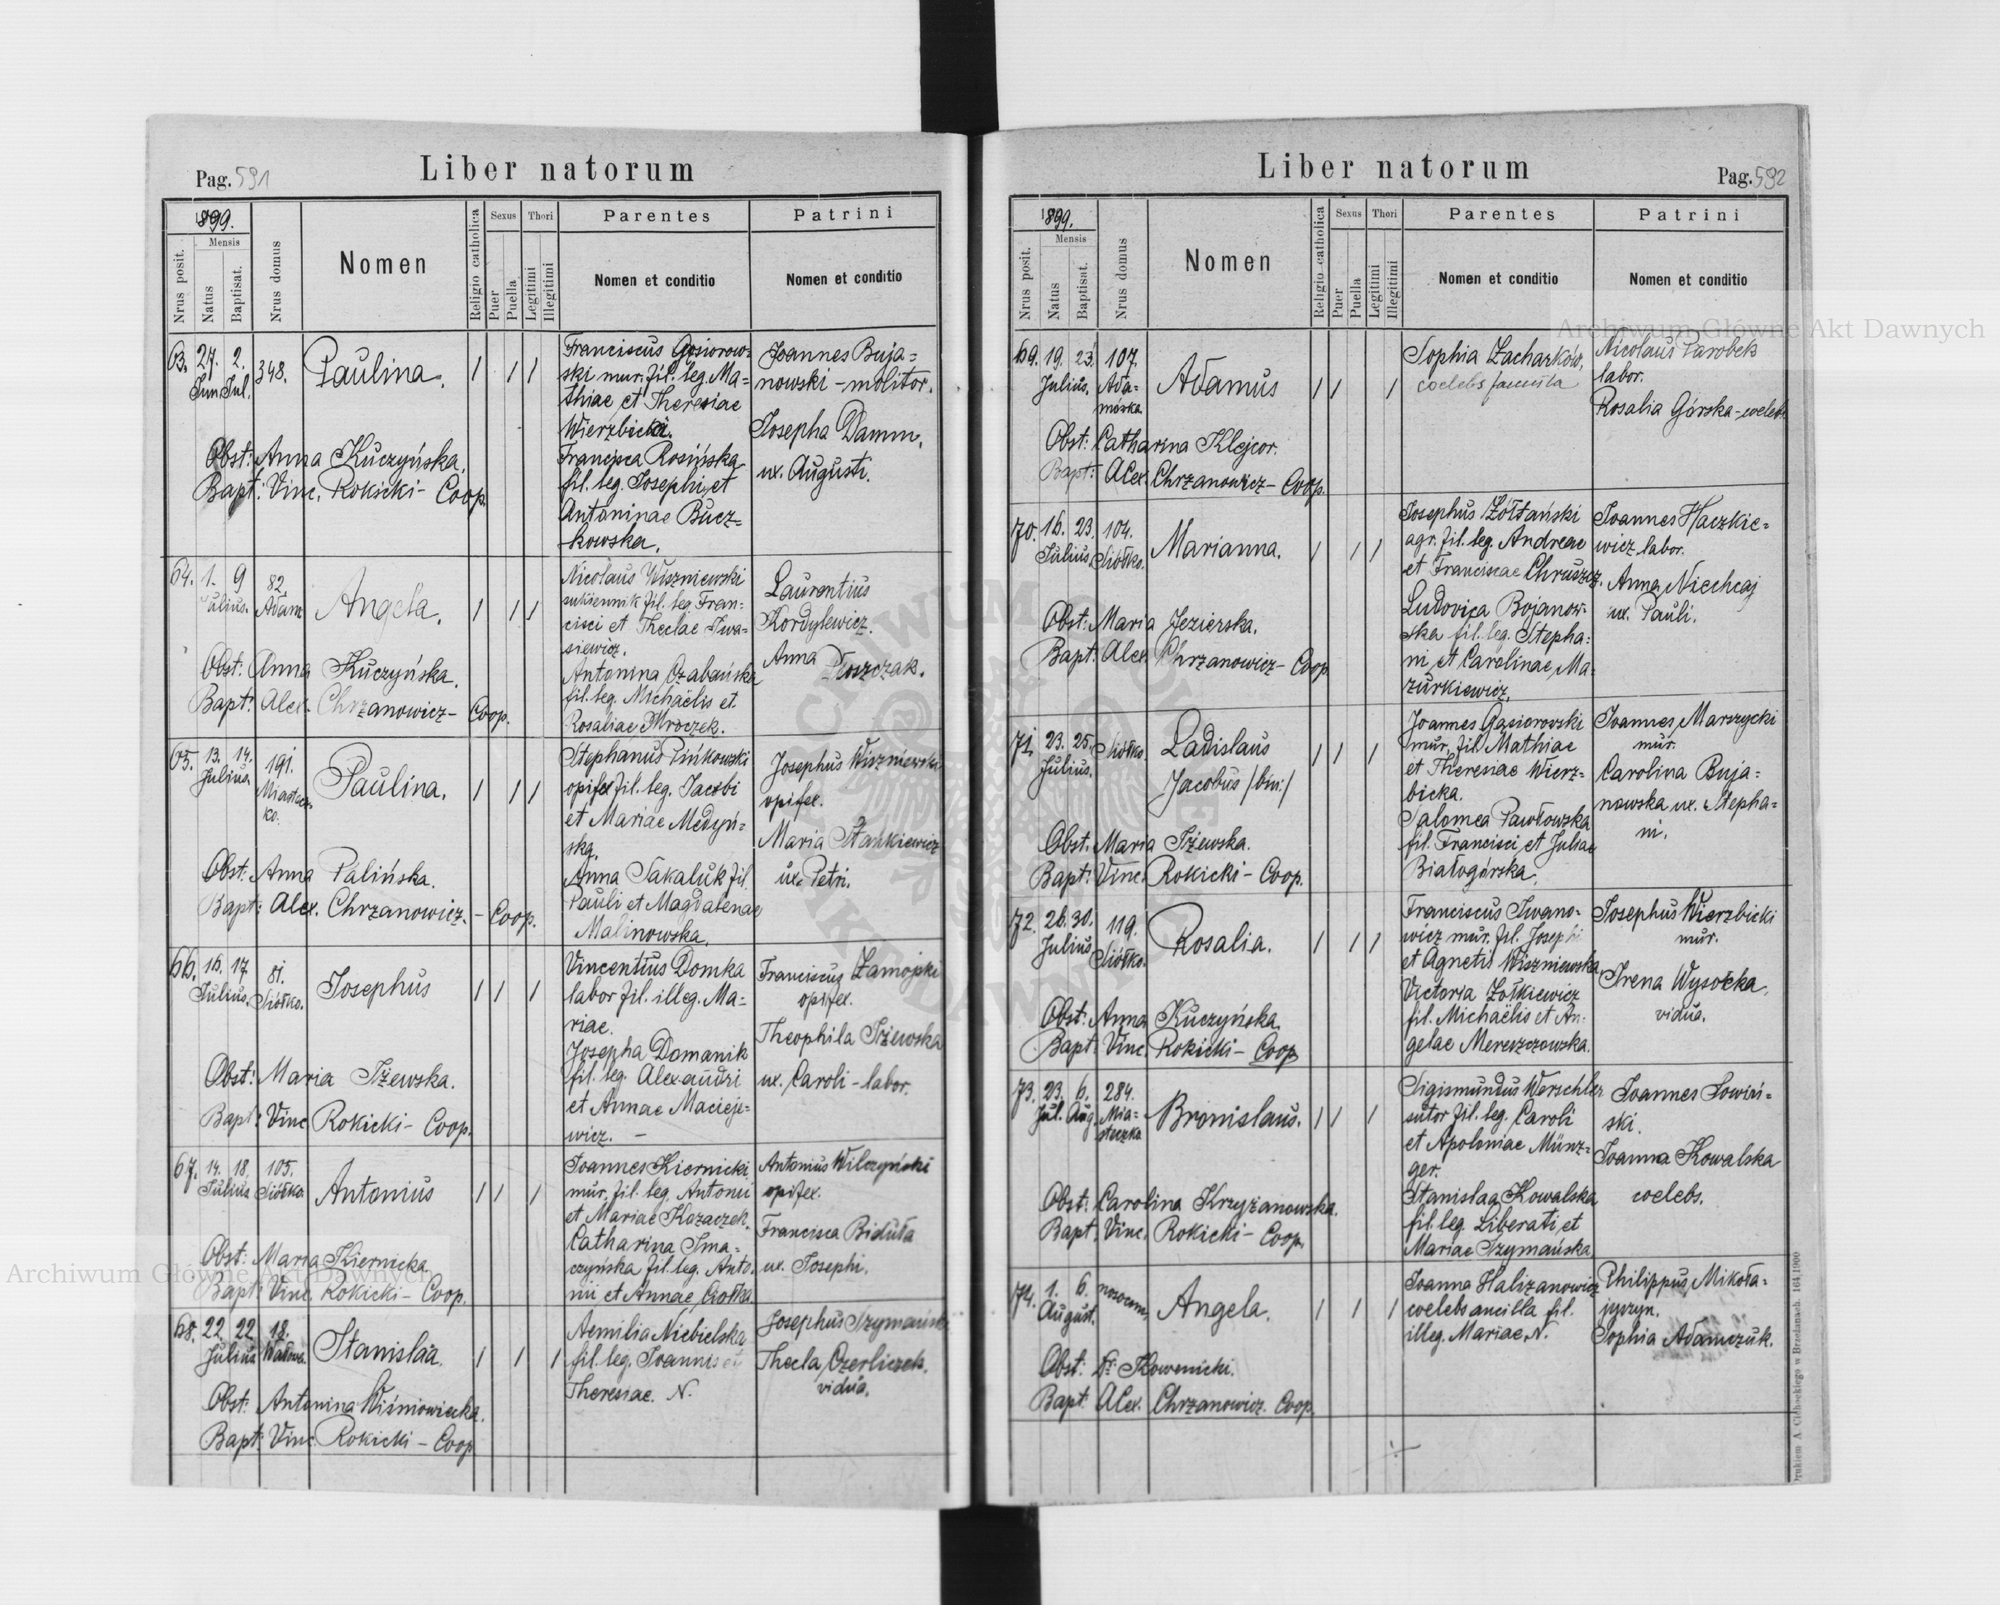 Liber natorum
Pag. 591
1899.
Nrus posit.
Mensis
Natus
Baptisat.
Nrus domus
Nomen
Religio catholica
Sexus
Puer
Puella
Thori
Legitimi
Illegitimi
Parentes
Nomen et conditio
Patrini
Nomen et conditio
63. 27. 2. 348. Paulina. 1 1 1
Jun. Jul.
Obst: Anna Kuczyńska.
Bapt: Vinc. Rokicki - Coop.
Franciscus Gąsiorow=
ski mur. fil. leg. Ma=
thiae et Theresiae
Wierzbicka.
Francisca Rosińska
fil. leg. Josephi et
Antoninae Bucz=
kowska.
Joannes Buja=
nowski - molitor.
Josepha Damm,
ux. Augusti.
64. 1. 9 82 Angela. 1 1 1
Julius. Adam
Obst: Anna Kuczyńska.
Bapt: Alex. Chrzanowicz - Coop.
Nicolaus Wiszniewski
sukiennik fil. leg. Fran=
cisci et Theclae Iwa=
siewicz.
Antonina Czabańska
fil. leg. Michaëlis et
Rosaliae Mroczek.
Laurentius
Kordylewicz.
Anna
65. 13. 14. 191. Paulina. 1 1 1
Julius Miastecz
ko.
Obst: Anna Palińska.
Bapt: Alex. Chrzanowicz. - Coop.
Stephanus Pińkowski
opifex fil. leg. Jacobi
et Mariae Medyń=
ska.
Anna Sakaluk fil.
Pauli et Magdalenae
Malinowska.
Josephus Wiszniewski
opifex.
Maria Stankiewicz
ux. Petri.
66. 16. 17. 81. Josephus 1 1 1
Julius. Siółko.
Obst: Maria Iżewska.
Bapt: Vinc Rokicki - Coop.
Vincentius Domka
labor fil. illeg. Ma=
riae.
Josepha Domanik
fil. leg. Alexandri
et Annae Macieje=
wicz. -
Franciscus Zamojski
opifex.
Theophila Iżewska
ux. Caroli - labor.
67. 14. 18. 105. Antonius 1 1 1
Julius Siółko.
Obst: Maria Kiernicka
Bapt: Vinc. Rokicki - Coop.
Joannes Kiernicki
mur. fil. leg. Antonii
et Mariae Kozaczek.
Catharina Ima=
czyńska fil. leg. Anto=
nii et Annae Ciołka
Antonius Wilczyński
opifex.
Francisca Biduła
ux. Josephi.
68. 22. 22 18. Stanislaa. 1 1 1
Julius
Obst: Antonina Wiśniowiecka.
Bapt: Vinc Rokicki - Coop
Aemilia Niebielska
fil. leg. Joannis et
Theresiae. N.
Josephus Szymański
Thecla Czerliczek.
vidua.
Liber natorum
Pag. 592
1899.
Nrus posit.
Mensis
Natus
Baptisat.
Nrus domus
Nomen
Religio catholica
Sexus
Puer
Puella
Thori
Legitimi
Illegitimi
Parentes
Nomen et conditio
Patrini
Nomen et conditio
69. 19. 23. 107. Adamus 1 1 1
Julius. Ada=
mówka
Obst: Catharina Klejcor.
Bapt: Alex Chrzanowicz - Coop.
Sophia Zacharków,
coelebs famula
Nicolaus Parobek
labor.
Rosalia Górska - coelebs
70. 16. 23. 104. Marianna. 1 1 1
Julius. Siółko.
Obst: Maria Jezierska.
Bapt: Alex. Chrzanowicz - Coop.
Josephus Żółtański
agr. fil. leg. Andreae
et Franciscae Chruszcz.
Ludovica Bojanow=
ska fil. leg. Stepha=
ni et Carolinae Ma=
zurkiewicz.
Joannes Haczkie=
wicz labor.
Anna Niechcaj
ux. Pauli.
71. 23. 25. Siółko Ladislaus 1 1 1
Julius. Jacobus /bin:/
Obst. Maria Iżewska.
Bapt: Vinc. Rokicki - Coop.
Joannes Gąsiorowski
mur. fil. Mathiae
et Theresiae Wierz=
bicka.
Salomea Pawłowska
fil. Francisci et Juliae
Białogórska.
Joannes Marszycki
mur.
Carolina Buja=
nowska ux. Stepha=
ni.
72. 26. 30. 119. Rosalia. 1 1 1
Julius Siółko.
Obst: Anna Kuczyńska.
Bapt. Vinc. Rokicki - Coop
Franciscus Iwano=
wicz mur. fil. Josephi
et Agnetis Wiszniewska
Victoria Żółkiewicz
fil. Michaëlis et An=
gelae Merwzczowska.
Josephus Wierzbicki
mur.
Irena Wysocka.
vidua.
73. 23. 6. 284. Bronislaus. 1 1 1
Jul. Aug. Mia=
steczko
Obst: Carolina Krzyżanowska.
Bapt. Vinc. Rokicki - Coop.
Sigismundus Werschler
sutor fil. leg. Caroli
et Apoloniae Münz=
ger.
Stanislaa Kowalska
fil. leg. Liberati et
Mariae Szymańska
Joannes Sowiń=
ski.
Joanna Kowalska
coelebs.
74. 1. 6. nosocom. Angela. 1 1 1
August.
Obst: Kowenicki.
Bapt: Alex. Chrzanowicz. Coop.
Joanna Halizanowicz
coelebs ancilla fil.
illeg. Mariae N.
Philippus Mikoła=
jyczyn.
Sophia Adamczuk.
Drukiem A. Cichockiego w Brzeżanach. 164.1900
Archiwum Główne Akt Dawnych
Archiwum Główne Akt Dawnych
ARCHIWUM GŁÓWNE AKT DAWNYCH